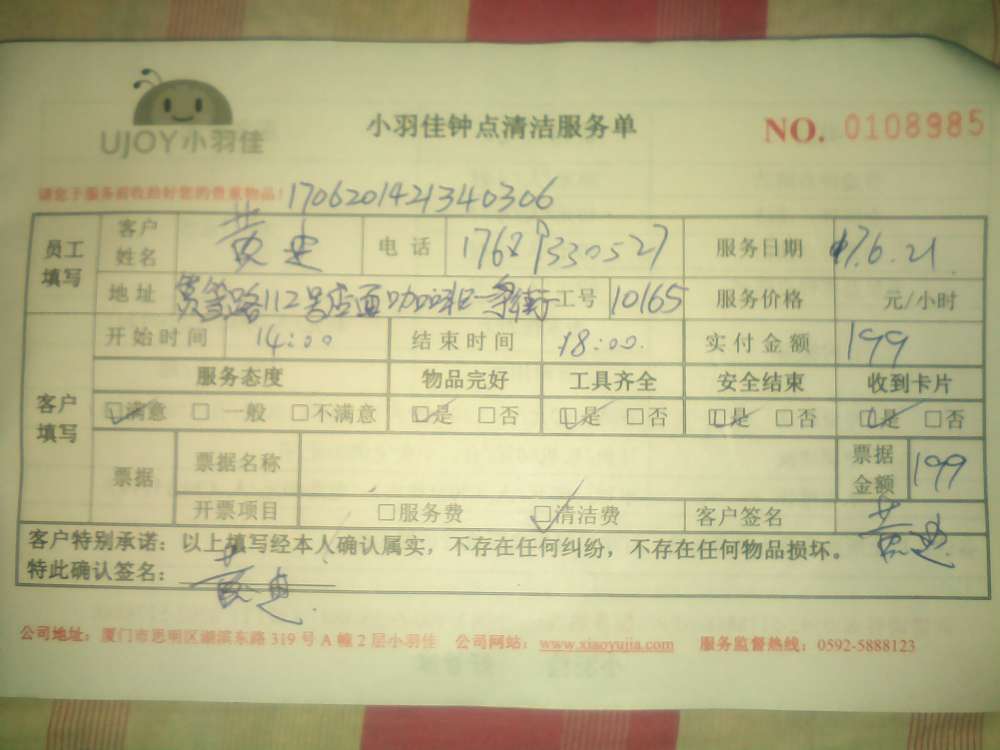 UJOY小羽佳
小羽佳钟点清洁服务单
NO. 0108985
请您于服务前收拾好您的贵重物品! 1706201421340306
员工填写 客户姓名 黄忠 电话 17689330527 服务日期 17.6.21
地址 路112号店面咖啡一条街 工号 10165 服务价格 元/小时
客户填写 开始时间 14:00 结束时间 18:00. 实付金额 199
服务态度 物品完好 工具齐全 安全结束 收到卡片
☑满意 □一般 □不满意 ☑是 □否 ☑是 □否 ☑是 □否 ☑是 □否
票据 票据名称 票据金额 199
开票项目 □服务费 ☑清洁费 客户签名 黄忠
客户特别承诺：以上填写经本人确认属实，不存在任何纠纷，不存在任何物品损坏。
特此确认签名： 黄忠
公司地址：厦门市思明区湖滨东路 319 号 A 幢 2 层小羽佳 公司网站：www.xiaoyujia.com 服务监督热线：0592-5888123